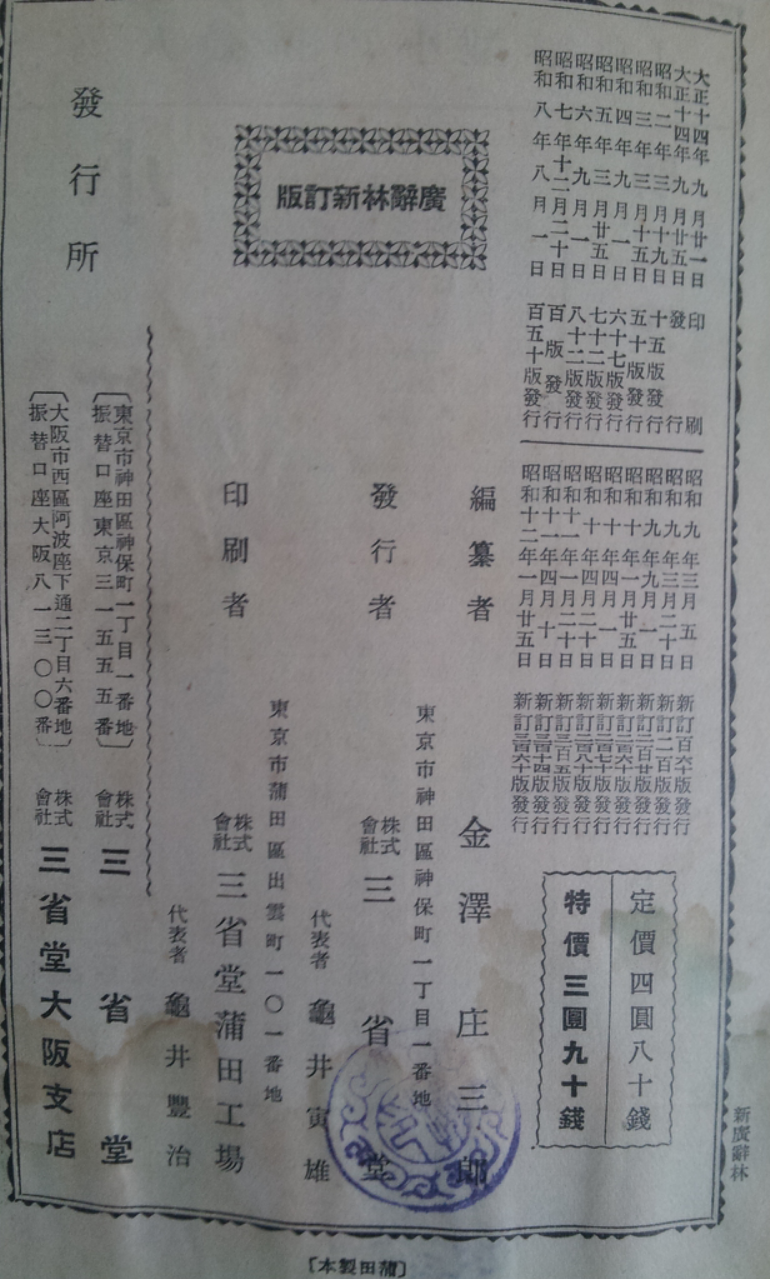 大正十四年九月廿一日印刷
大正十四年九月廿五日發行
昭和二年三月十九日十五版發行
昭和三年三月十五日五十版發行
昭和四年九月一日六十七版發行
昭和五年三月廿五日七十二版發行
昭和六年九月一日八十二版發行
昭和七年十二月二十日百版發行
昭和八年八月一日百五十版發行
昭和九年三月五日新訂百六十版發行
昭和九年三月二十日新訂二百版發行
昭和九年九月一日新訂二百廿版發行
昭和十年一月廿五日新訂二百六十版發行
昭和十年四月一日新訂二百七十版發行
昭和十年四月二十日新訂二百八十版發行
昭和十一年一月二十日新訂三百五版發行
昭和十一年四月十日新訂三百十四版發行
昭和十二年一月廿五日新訂三百六十版發行
定價四圓八十錢
特價三圓九十錢
廣辭林新訂版
編纂者 金澤庄三郎
東京市神田區神保町一丁目一番地
發行者 株式會社三省堂
代表者 龜井寅雄
東京市蒲田區出雲町一〇一番地
印刷者 株式會社三省堂蒲田工場
代表者 龜井豐治
發行所
東京市神田區神保町一丁目一番地
振替口座東京三一五五五番
株式會社三省堂
大阪市西區阿波座下通二丁目六番地
振替口座大阪八一三〇〇番
株式會社三省堂大阪支店
新廣辭林
〔蒲田製本〕